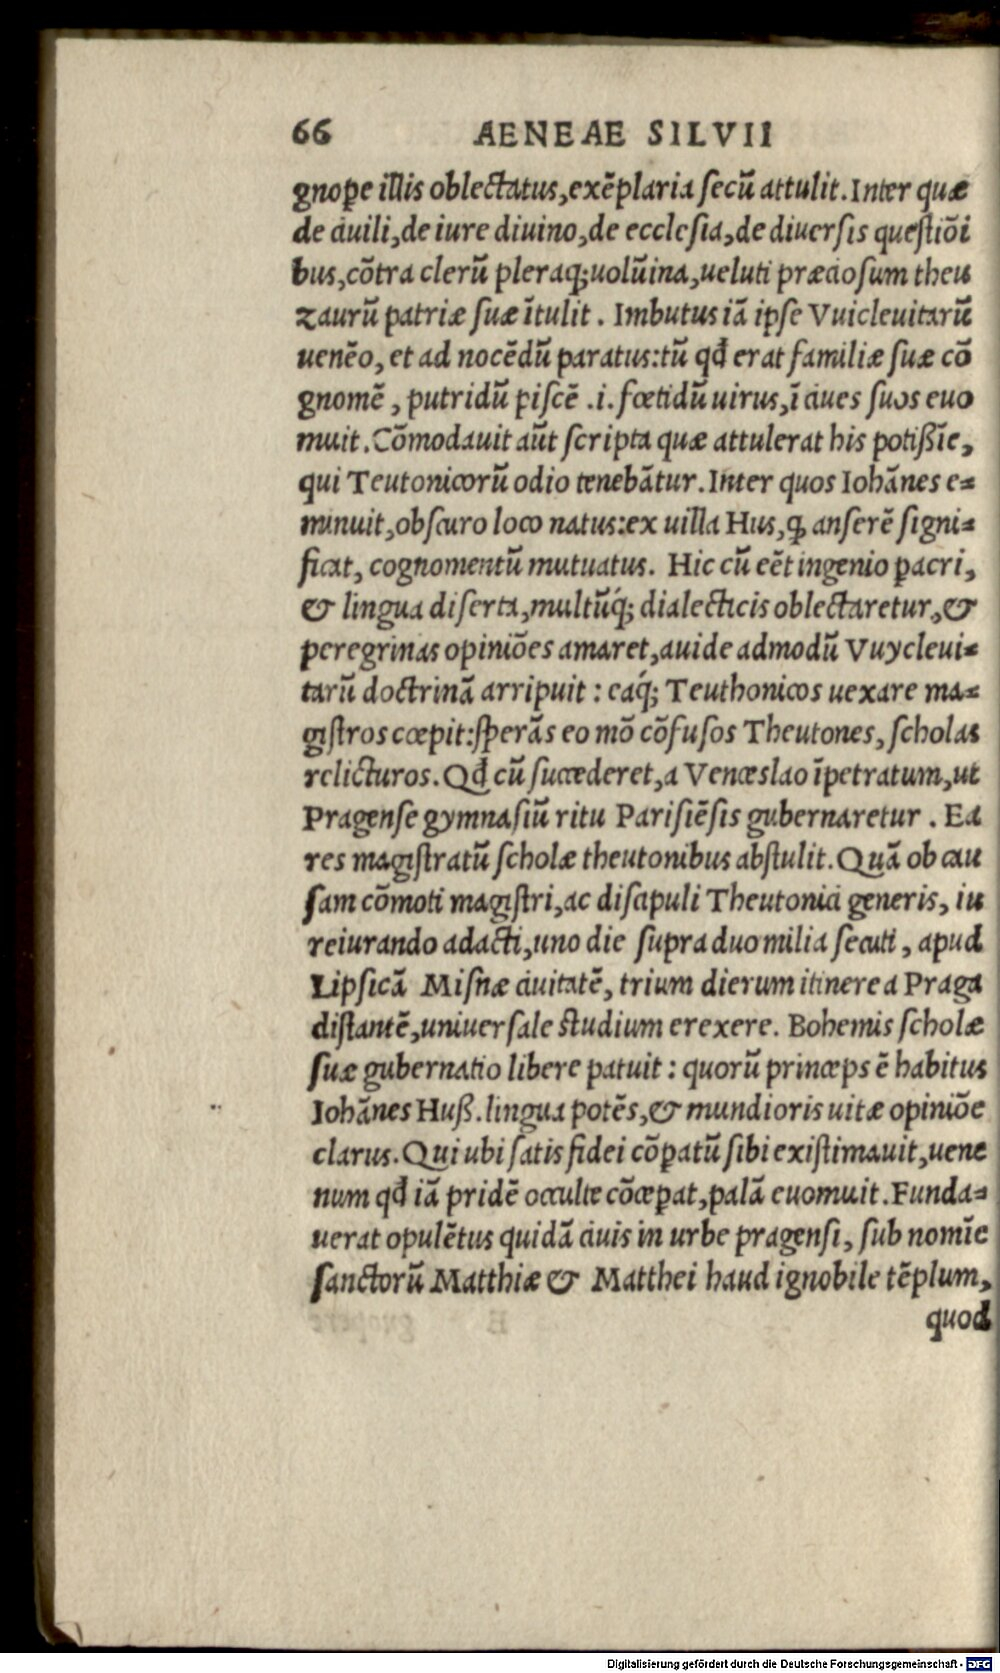 66 AENEAE SILVII
gnope illis oblectatus, exēplaria secū attulit. Inter quæ
de ciuili, de iure diuino, de ecclesia, de diuersis questiōi
bus, cōtra clerū pleraq; uolūina, ueluti præciosum theu
zaurū patriæ suæ ītulit. Imbutus iā ipse Vuicleuitarū
uenēo, et ad nocēdū paratus: tū qđ erat familiæ suæ cō
gnomē, putridū piscē .i. fœtidū uirus, ī ciues suos euo
muit. Cōmodauit aūt scripta quæ attulerat his potißīe,
qui Teutonicorū odio tenebātur. Inter quos Iohānes e=
minuit, obscuro loco natus: ex uilla Hus, ꝙ anserē signi=
ficat, cognomentū mutuatus. Hic cū eēt ingenio ꝑacri,
& lingua diserta, multūq́; dialecticis oblectaretur, &
peregrinas opiniōes amaret, auide admodū Vuycleui=
tarū doctrinā arripuit : eaq́; Teuthonicos uexare ma=
gistros cœpit: sperās eo mō cōfusos Theutones, scholas
relicturos. Qđ cū succederet, a Venceslao īpetratum, ut
Pragense gymnasiū ritu Parisiēsis gubernaretur . Ea
res magistratū scholæ theutonibus abstulit. Quā ob cau
sam cōmoti magistri, ac discipuli Theutonici generis, iu
reiurando adacti, uno die supra duo milia secuti, apud
Lipsicā Misnæ ciuitatē, trium dierum itinere a Praga
distantē, uniuersale studium erexere. Bohemis scholæ
suæ gubernatio libere patuit : quorū princeps ē habitus
Iohānes Huß. lingua potēs, & mundioris uitæ opiniōe
clarus. Qui ubi satis fidei cōꝑatū sibi existimauit, uene
num qđ iā pridē occulte cōceꝑat, palā euomuit. Funda=
uerat opulētus quidā ciuis in urbe pragensi, sub nomīe
sanctorū Matthiæ & Matthei haud ignobile tēplum,
quod
Digitalisierung gefördert durch die Deutsche Forschungsgemeinschaft - DFG